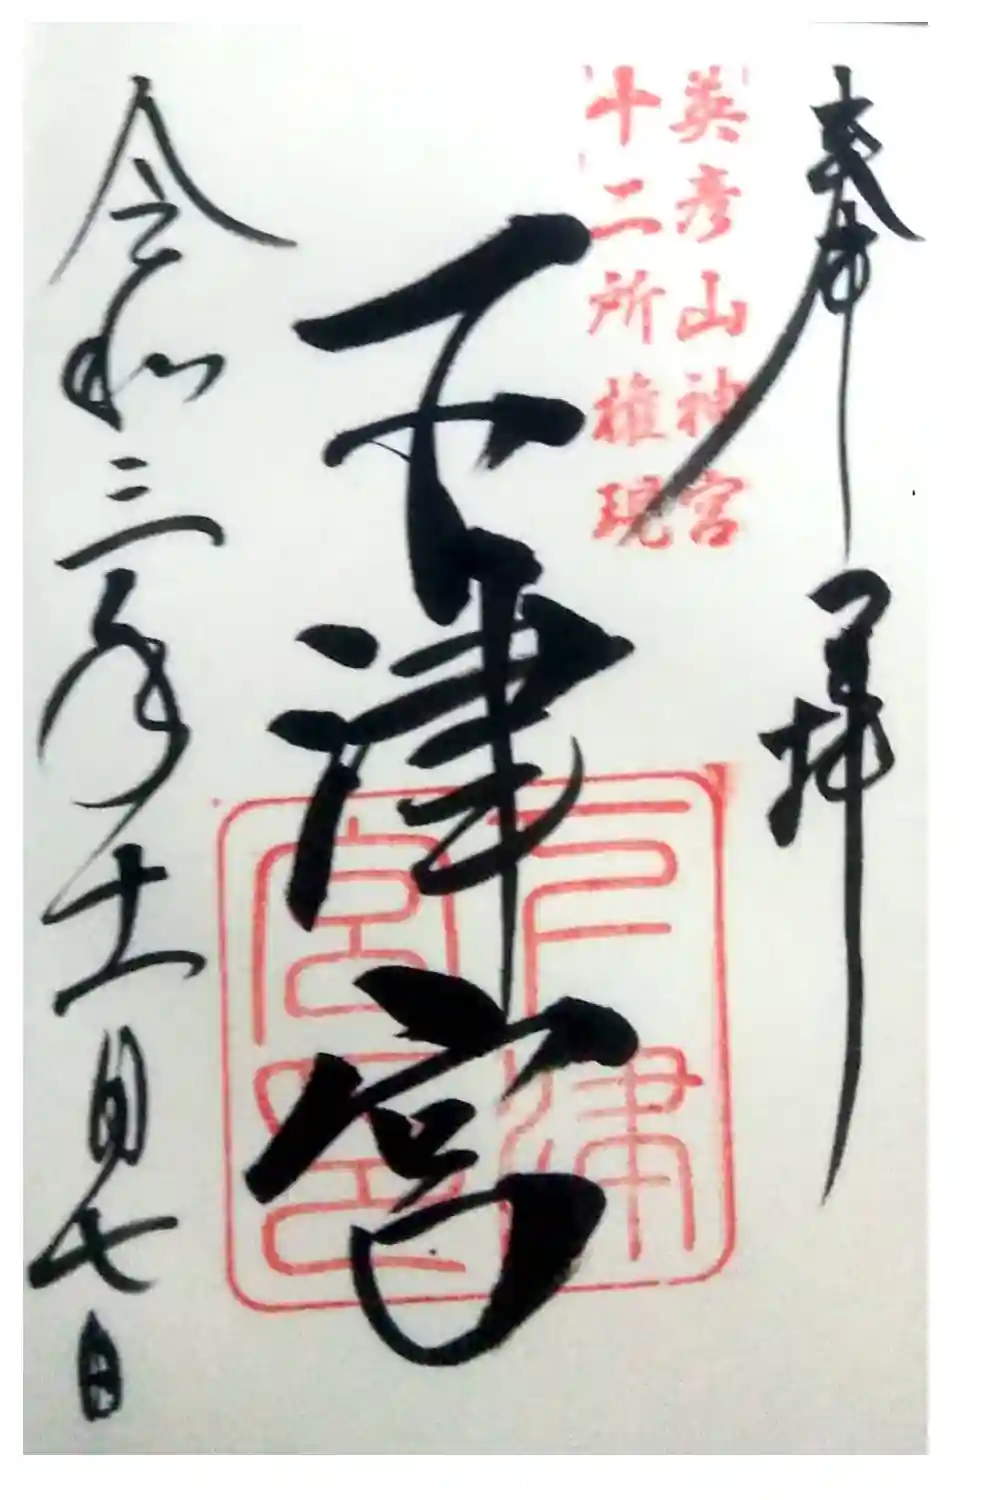 奉拝
英彦山神宮
十二所権現
下津宮
下津
宮印
令和三年十一月七日